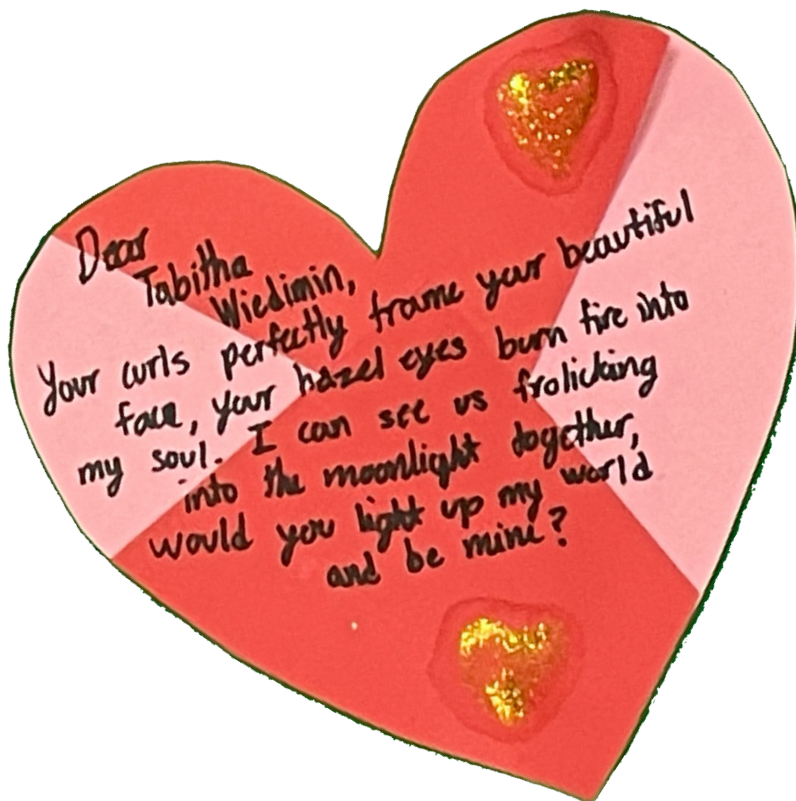 Dear
Tabitha
Wiedimin,
Your curls perfectly frame your beautiful
face, your hazel eyes burn fire into
my soul. I can see us frolicking
into the moonlight together,
would you light up my world
and be mine?